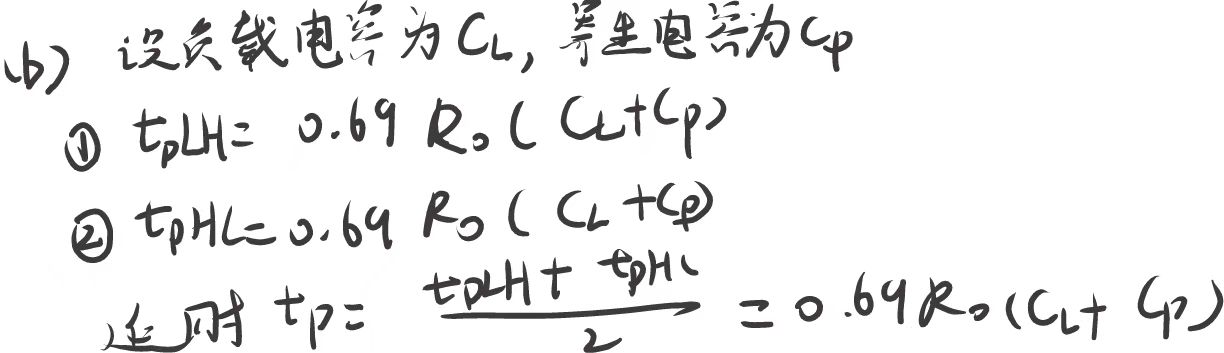 (b) 设负载电容为 C_L, 寄生电容为 C_p
① t_pLH = 0.69 R_0 ( C_L + C_p )
② t_pHL = 0.69 R_0 ( C_L + C_p )
延时 t_p = \frac{t_pLH + t_pHL}{2} = 0.69 R_0 ( C_L + C_p )